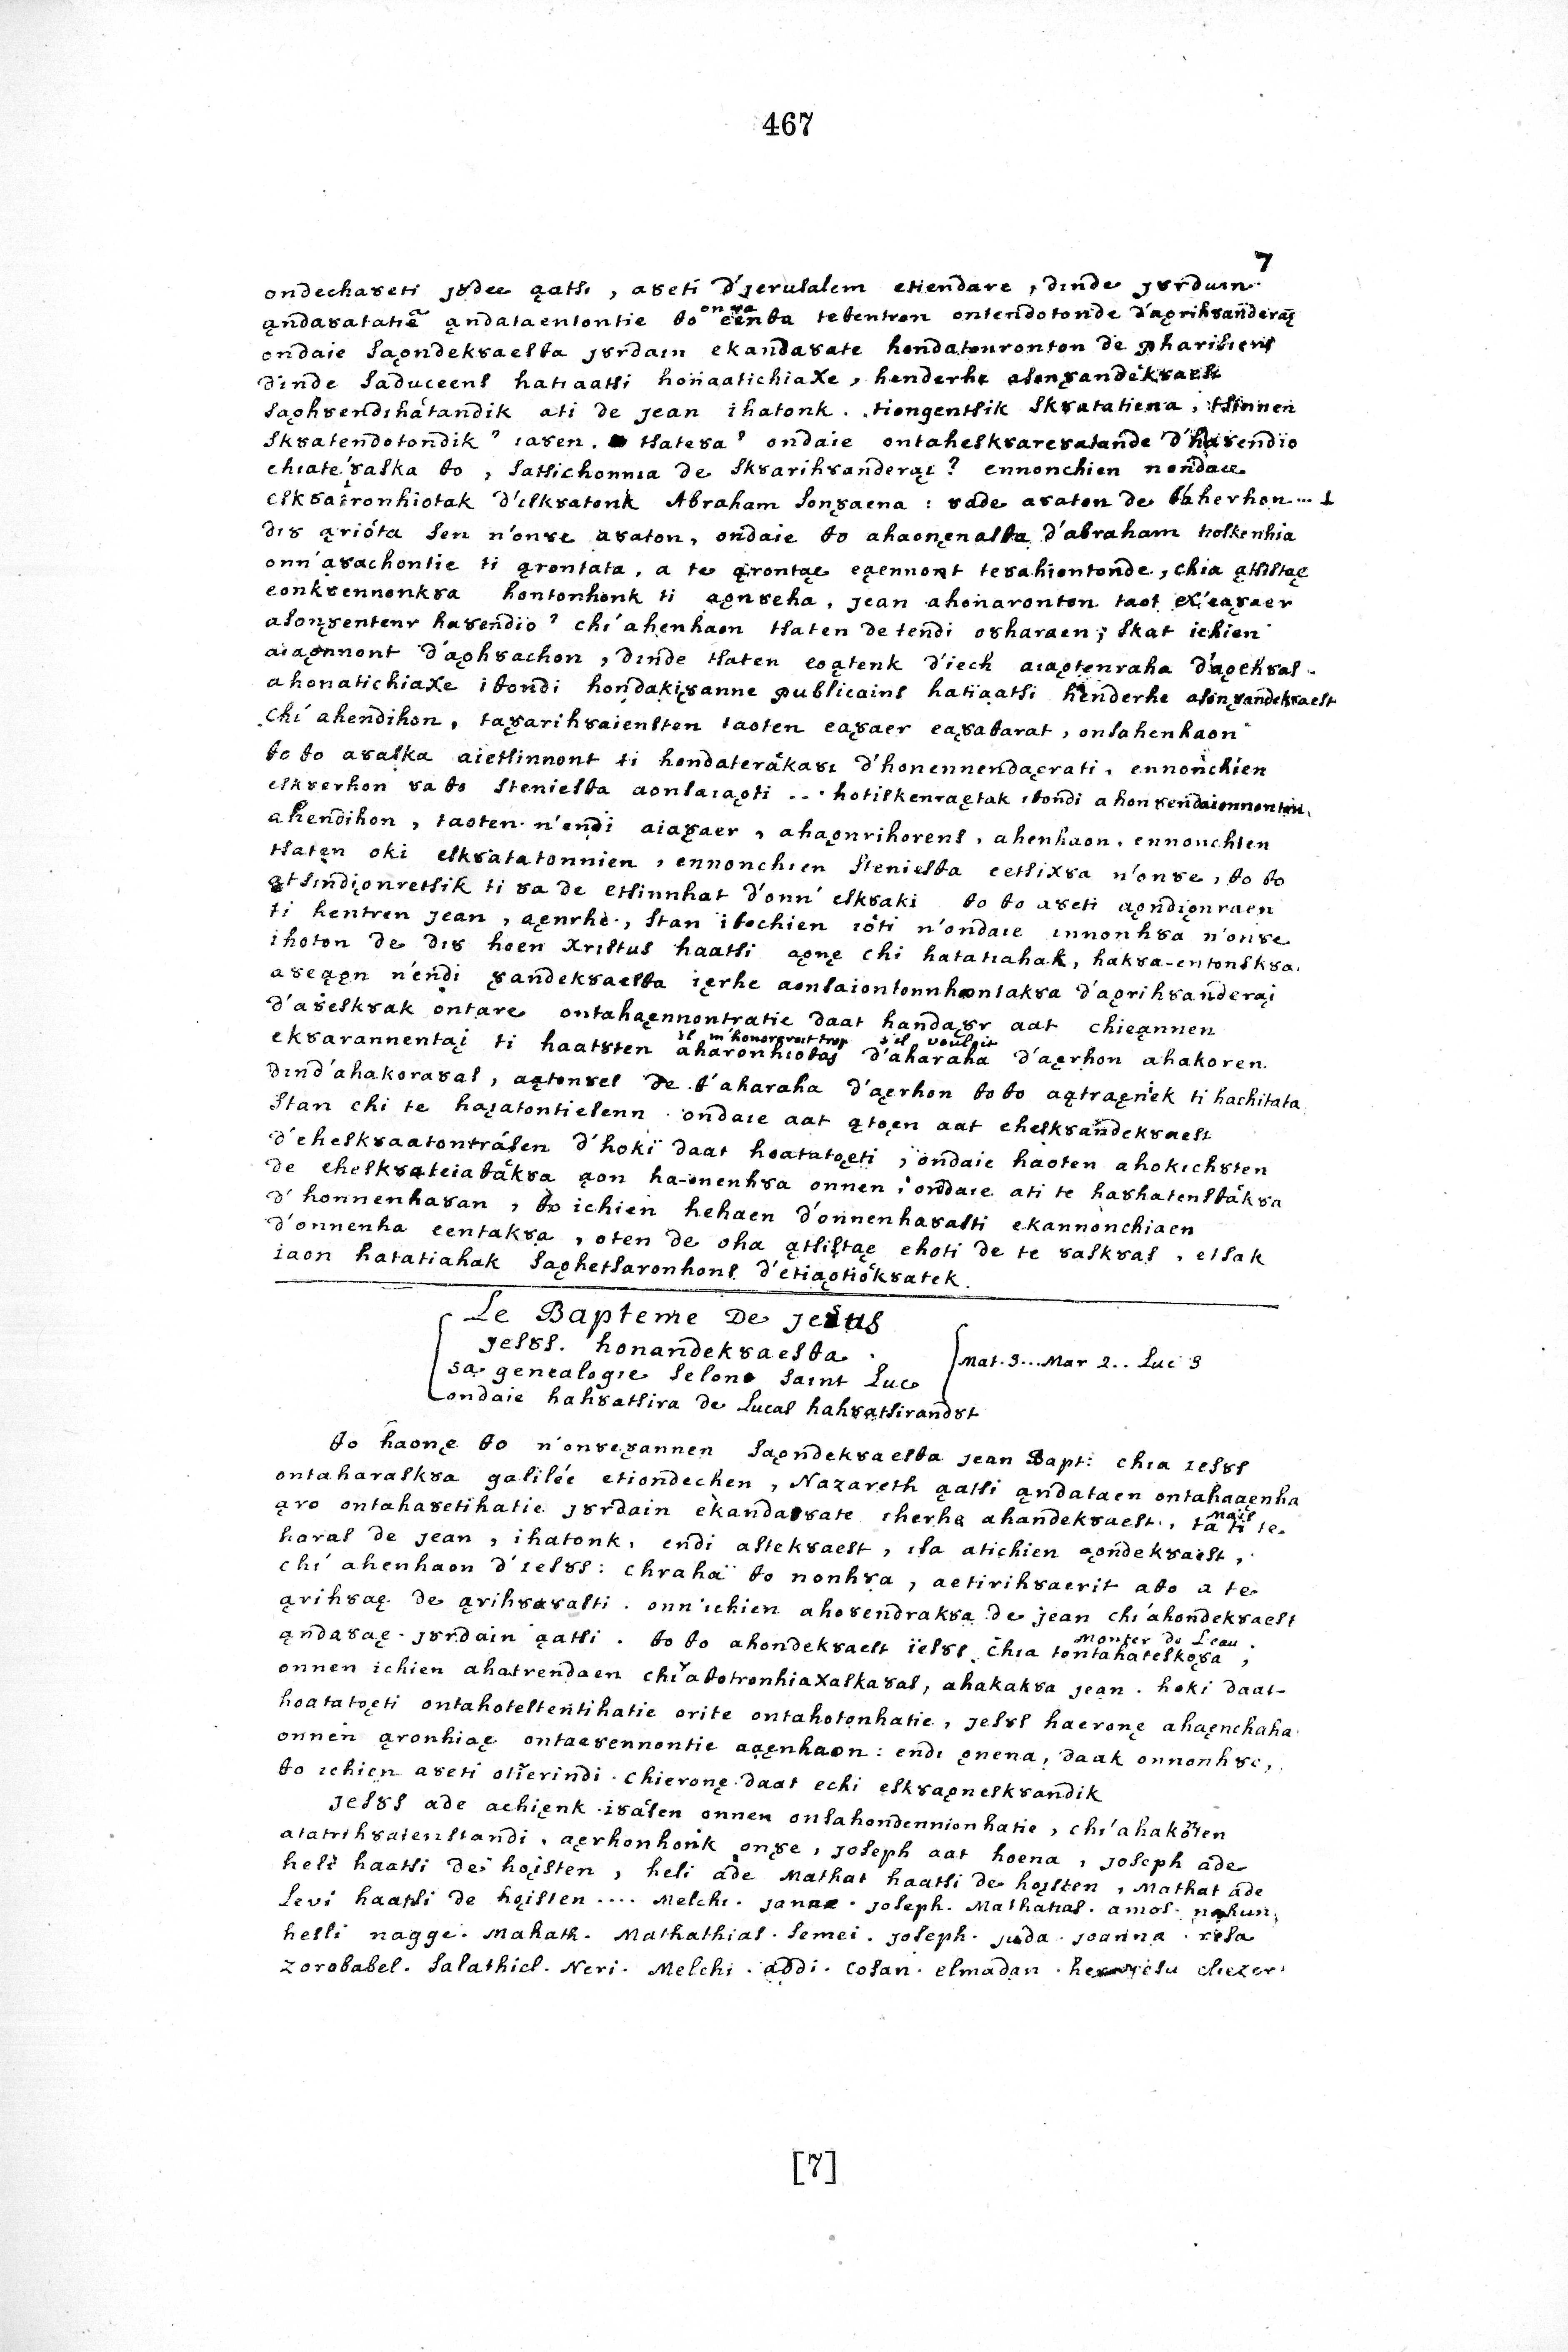 467
7
ondechaȣeti jȣdee ąatsi, aȣeti d'jerusalem etiendare, dinde jȣrdain
ąndaȣatatie ąndataentontie ꝋo eenꝋa teꝋentron ontendotonde d'aǫrihȣanderaį
onȣa
ondaie saǫndekȣaesꝋa jȣrdain ekandaȣate hondatonronton de pharisiens
dinde saduceens hatiaatsi honaatichiaxe, henderhe asonȣandekȣaest
saǫhȣendihatandik ati de jean ihatonk. tiongentsik skȣatatiena, tsinnen
skȣatendotondik? iaȣen. tsateȣa? ondaie ontaheskȣareȣatande d'haȣendio
chiateȣaska ꝋo, satsichonnia de skȣarihȣanderaį? ennonchien nondaie
eskȣaironhiotak d'iskȣatonk Abraham sonȣaena: ȣade aȣaton de ꝋaherhon ... ⊥
diȣ ąrióta sen n'onȣe aȣaton, ondaie ꝋo ahaonęnasꝋa d'abraham tioskenhia
onn'aȣachontie ti ąrontata, a te ąrontaę eąennont teȣahiontonde, chia ątsistaę
eonkȣennonkȣa hontonhonk ti aǫnȣeha, jean ahonaronton taot ex'eaȣaer
asonȣentenr haȣendio? chi'ahenhaon tsaten detendi oȣharaen; skat ichien
aiaǫnnont d'aǫhȣachon, dinde tsaten eoątenk d'iech aiaǫtenraha d'aǫehȣas.
ahonatichiaxe iꝋondi hondakiȣanne publicains hatiaatsi henderhe asonȣandekȣaest
chi'ahendihon, taȣarihȣaiensten taoten eaȣaer eaȣaꝋarat, onsahenhaon
ꝋo ꝋo aȣaska aietsinnont ti hondaterákaȣi d'honennendaęrati. ennonchien
eskȣerhon ȣa ꝋo steniesꝋa aonsaiaǫti .. hotiskenraętak iꝋondi ahonȣendaionnonton.
ahendihon, taoten n'endi aiaȣaer, ahaǫnrihorens, ahenhaon. ennonchien
tsaten oki eskȣatatonnien, ennonchien steniesꝋa eetsixȣa n'onȣe, ꝋo ꝋo
ątsindįonretsik ti ȣa de etsinnhat d'onn'eskȣaki ꝋo ꝋo aȣeti aǫndįonraen
ti hentren jean, aęnrhe, stan iꝋochien ióti n'ondaie innonhȣa n'onȣe
ihoton de diȣ hoen xristus haatsi aǫnę chi hatatiahak, hakȣa-entonskȣa.
aȣeąǫn n'endi ȣandekȣaesꝋa ięrhe aonsaiontonnhontakȣa d'aǫrihȣanderaį
d'aȣeskȣak ontare ontahaęnnontratie daat handaȣr aat chieąnnen
ekȣarannentaį ti haatȣten aharonhioꝋaį d'aharaha d'aęrhon ahakoren.
il m'honoreroit trop s'il vouloit
dind'ahakoraȣas, aątonȣes de ꝋ'aharaha d'aęrhon ꝋo ꝋo aątraęnek ti hachitata.
stan chi te haįatontiesenn ondaie aat ątoęn aat eheskȣandekȣaest
d'eheskȣaatontrásen d'hoki daat hoatatoęti, ondaie haoten ahokichȣten
de eheskȣateiaꝋákȣa ąon ha-onenhȣa onnen; ondaie ati te haȣhatensꝋákȣa
d'honnenhaȣan, ꝋo ichien hehaen d'onnenhaȣasti ekannonchiaen
d'onnenha eentakȣa, oten de oha ątsistaę ehoti de te ȣaskȣas, etsak
iaon hatatiahak saǫhetsaronhons d'etiaǫtiókȣatek.
Le Bapteme De Jesus
jesȣs. honandekȣaesꝋa.
sa genealogie selon saint Luc
ondaie hahȣatsira de Lucas hahȣatsirandȣt
Mat. 3... Mar 2.. Luc 3
ꝋo haonę ꝋo n'onȣeȣannen saǫndekȣaesꝋa jean Bapt: chia iesȣs
ontaharaskȣa galilée etiondechen, Nazareth ąatsi ąndataen ontahaąęnha
ąro ontahaȣetihatie jȣrdain ekandaȣate iherhe ahandekȣaest, ta ti te
mais
haras de jean, ihatonk, endi astekȣaest, isa atichien aǫndekȣaest,
chi'ahenhaon d'iesȣs: chraha ꝋo nonhȣa, aetirihȣaerit aꝋo a te
ąrihȣaę de ąrihȣaȣasti. onn'ichien ahoȣendrakȣa de jean chi'ahondekȣaest
ąndaȣaę jȣrdain ąatsi. ꝋo ꝋo ahondekȣaest iesȣs chia tontahateskoȣa,
monter de l'eau
onnen ichien ahatrendaen chi'aꝋotronhiaxaskaȣas, ahakakȣa jean. hoki daat-
hoatatoęti ontahotestentihatie orite ontahotonhatie, jesȣs haeronę ahaęnchaha
onnen ąronhiaę ontaeȣennontie aąęnhaon: endi ǫnena, daak onnonhȣe,
ꝋo ichien aȣeti otierindi. chieronę daat echi eskȣaǫneskȣandik
jesȣs ade achięnk iȣásen onnen onsahondennionhatie, chi'ahakóten
atatrihȣaienstandi, aęrhonhonk onȣe, joseph aat hoena, joseph ade
heli haatsi de hoįsten, heli ade Mathat haatsi de hoįsten, Mathat ade
Levi haatsi de hoįsten .... Melchi. janne. joseph. Mathatias. amos. nahun,
hesli nagge. Mahath. Mathathias. semei. joseph. juda. joanna. resa
zorobabel. salathiel. Neri. Melchi. addi. cosan. elmadan. her jesu eliezer
[7]